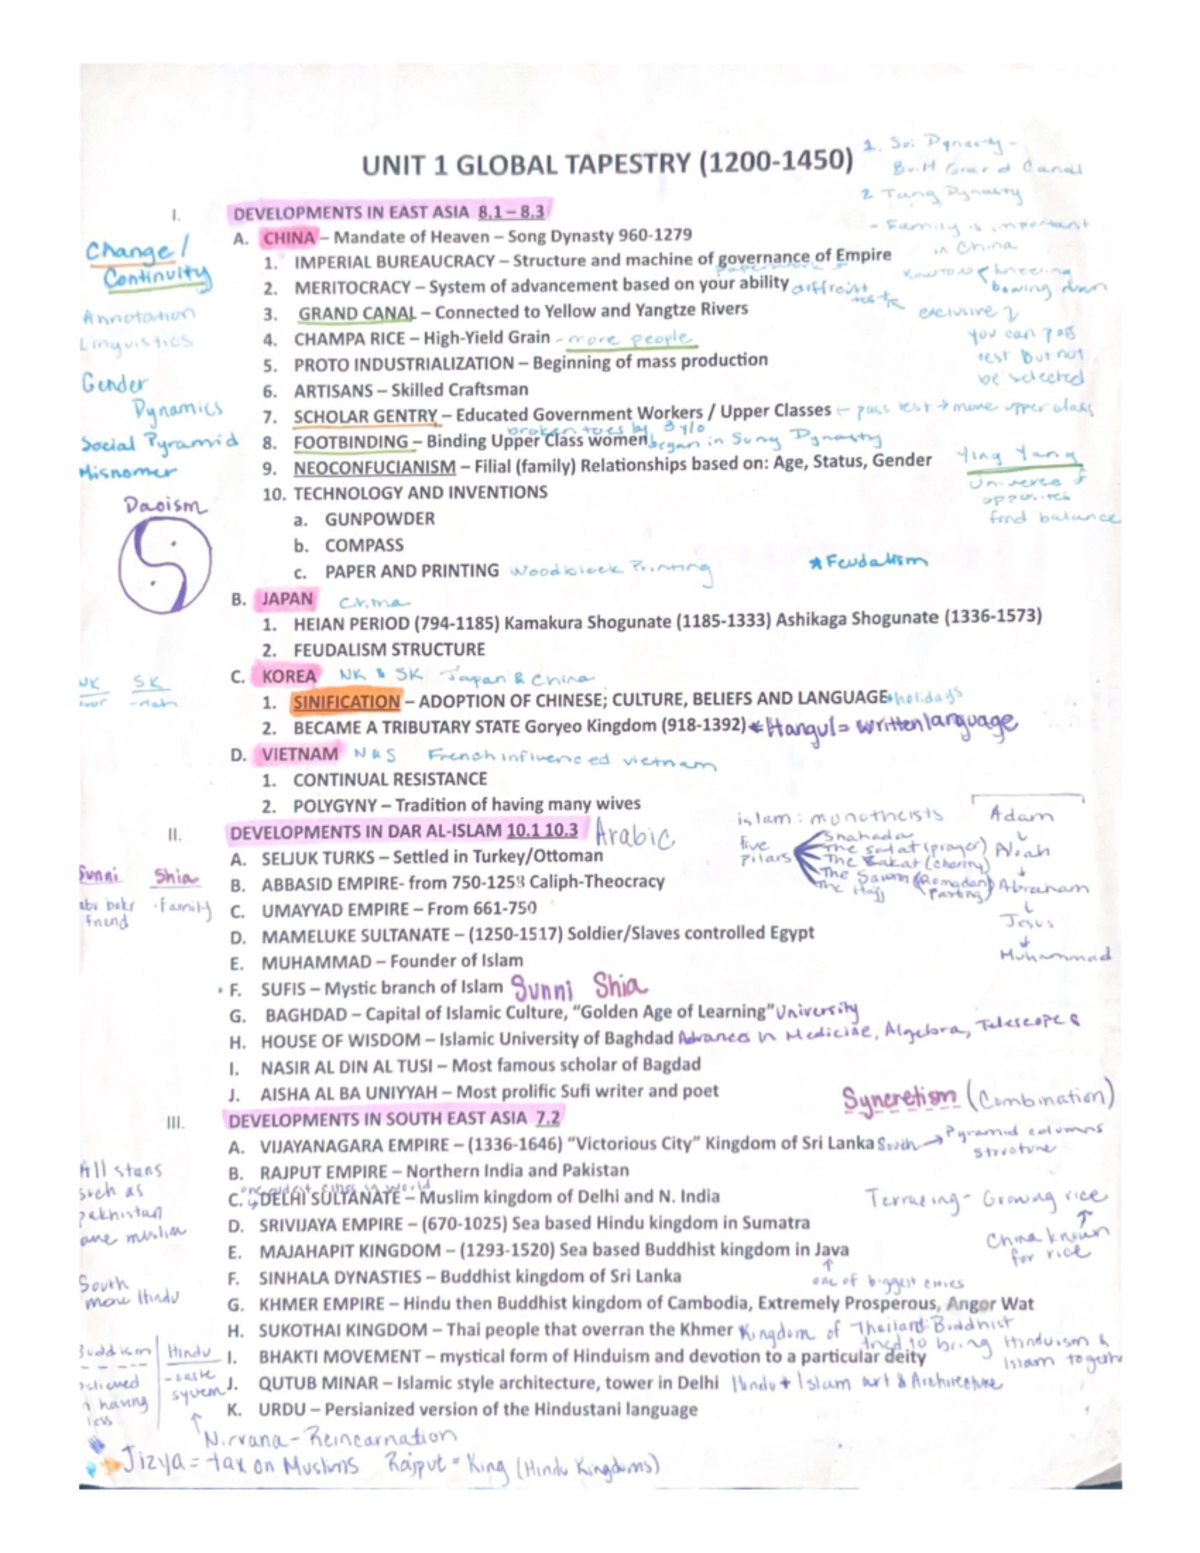 UNIT 1 GLOBAL TAPESTRY (1200-1450)
1. Sui Dynasty -
Built Grand Canal
2 Tang Dynasty
- Family is important
in China
kowtow kneeling
bowing down
exclusive
you can pass
test but not
be selected
I. DEVELOPMENTS IN EAST ASIA 8.1 – 8.3
A. CHINA – Mandate of Heaven – Song Dynasty 960-1279
1. IMPERIAL BUREAUCRACY – Structure and machine of governance of Empire
2. MERITOCRACY – System of advancement based on your ability
3. GRAND CANAL – Connected to Yellow and Yangtze Rivers
4. CHAMPA RICE – High-Yield Grain - more people
5. PROTO INDUSTRIALIZATION – Beginning of mass production
6. ARTISANS – Skilled Craftsman
7. SCHOLAR GENTRY – Educated Government Workers / Upper Classes ← pass test → move upper class
broken toes by 3 y/o
8. FOOTBINDING – Binding Upper Class women began in Sung Dynasty
9. NEOCONFUCIANISM – Filial (family) Relationships based on: Age, Status, Gender
Ying Yang
Universe
opposites
find balance
10. TECHNOLOGY AND INVENTIONS
a. GUNPOWDER
b. COMPASS
c. PAPER AND PRINTING Woodblock Printing
*Feudalism
Change/
Continuity
Annotation
Linguistics
Gender
Dynamics
Social Pyramid
Misnomer
Daoism
B. JAPAN China
1. HEIAN PERIOD (794-1185) Kamakura Shogunate (1185-1333) Ashikaga Shogunate (1336-1573)
2. FEUDALISM STRUCTURE
C. KOREA NK & SK Japan & China
SK
1. SINIFICATION – ADOPTION OF CHINESE; CULTURE, BELIEFS AND LANGUAGE +holidays
2. BECAME A TRIBUTARY STATE Goryeo Kingdom (918-1392) *Hangul = written language
D. VIETNAM N & S French influenced vietnam
1. CONTINUAL RESISTANCE
2. POLYGYNY – Tradition of having many wives
II. DEVELOPMENTS IN DAR AL-ISLAM 10.1 10.3 Arabic
islam: monotheists
five
pillars
Shahada
The Salat (prayer)
The Zakat (charity)
The Sawm (Ramadan)
Fasting)
The Hajj
Adam
Noah
Abraham
Jesus
Muhammad
A. SELJUK TURKS – Settled in Turkey/Ottoman
B. ABBASID EMPIRE- from 750-1258 Caliph-Theocracy
C. UMAYYAD EMPIRE – From 661-750
D. MAMELUKE SULTANATE – (1250-1517) Soldier/Slaves controlled Egypt
E. MUHAMMAD – Founder of Islam
F. SUFIS – Mystic branch of Islam Sunni Shia
G. BAGHDAD – Capital of Islamic Culture, “Golden Age of Learning” University
H. HOUSE OF WISDOM – Islamic University of Baghdad Advances in Medicine, Algebra, Telescopes
I. NASIR AL DIN AL TUSI – Most famous scholar of Bagdad
J. AISHA AL BA UNIYYAH – Most prolific Sufi writer and poet
Sunni Shia
abu bakr - family
friend
Syncretism (Combination)
III. DEVELOPMENTS IN SOUTH EAST ASIA 7.2
A. VIJAYANAGARA EMPIRE – (1336-1646) “Victorious City” Kingdom of Sri Lanka South → Pyramid columns
structure
B. RAJPUT EMPIRE – Northern India and Pakistan
C. DELHI SULTANATE – Muslim kingdom of Delhi and N. India
Terracing - Growing rice
China known
for rice
D. SRIVIJAYA EMPIRE – (670-1025) Sea based Hindu kingdom in Sumatra
E. MAJAHAPIT KINGDOM – (1293-1520) Sea based Buddhist kingdom in Java
one of biggest cities
F. SINHALA DYNASTIES – Buddhist kingdom of Sri Lanka
G. KHMER EMPIRE – Hindu then Buddhist kingdom of Cambodia, Extremely Prosperous, Angor Wat
H. SUKOTHAI KINGDOM – Thai people that overran the Khmer Kingdom of Thailand-Buddhist
tried to bring Hinduism &
Islam together
I. BHAKTI MOVEMENT – mystical form of Hinduism and devotion to a particular deity
J. QUTUB MINAR – Islamic style architecture, tower in Delhi Hindu + Islam art & Architecture
K. URDU – Persianized version of the Hindustani language
All stans
such as
pakhistan
are muslim
South
more Hindu
Buddism Hindu
- caste
system
believed
having
less
Nirvana - Reincarnation
Jizya = tax on Muslims Rajput = King (Hindu Kingdoms)